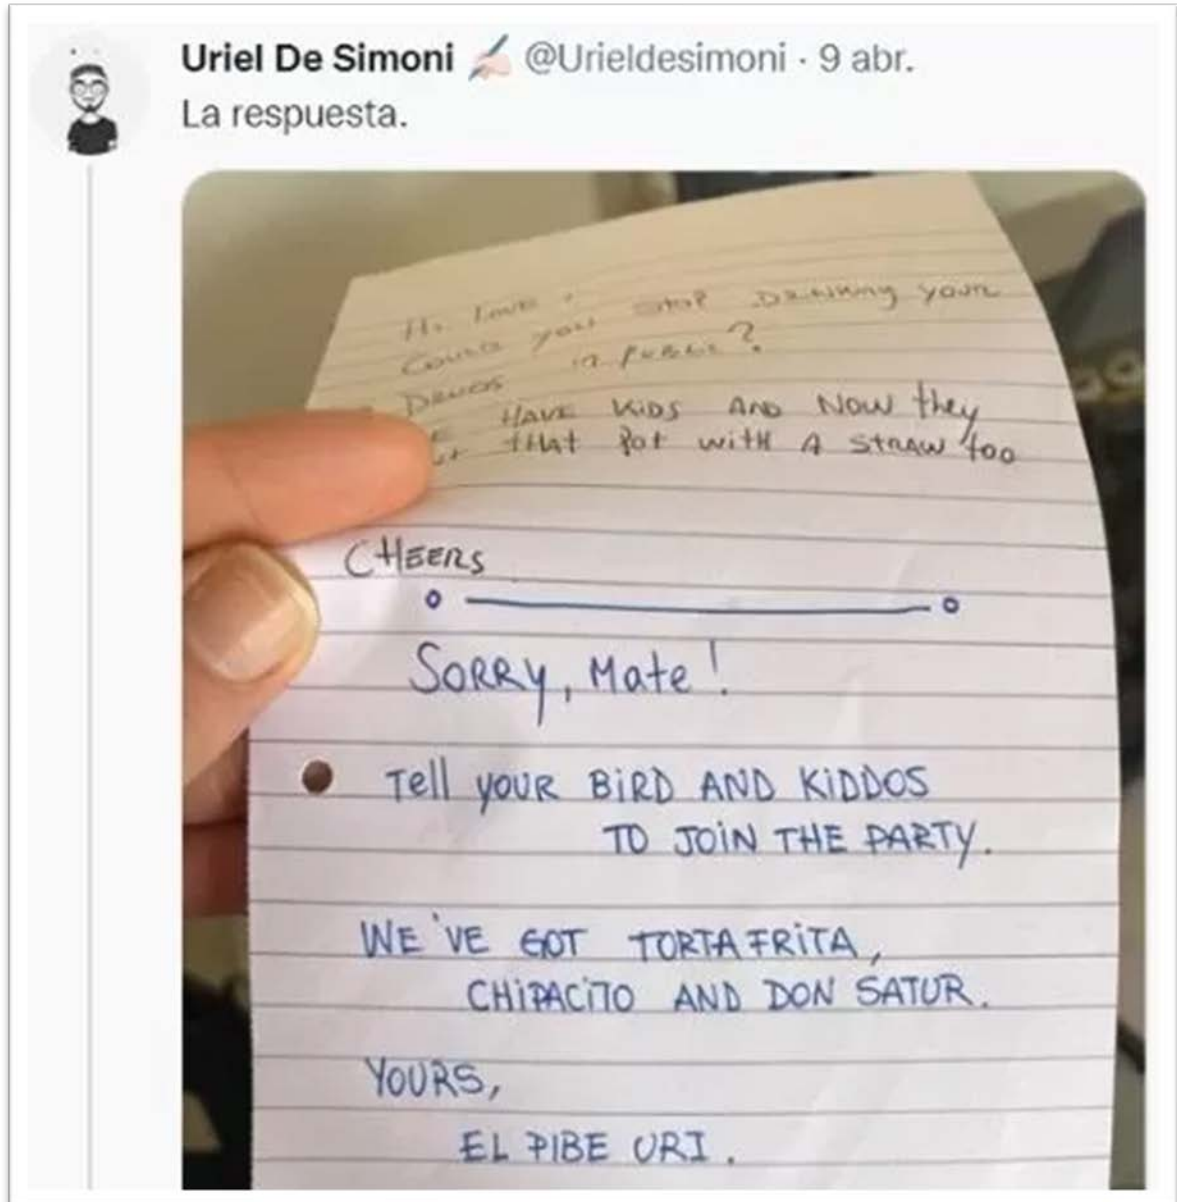 Uriel De Simoni @Urieldesimoni · 9 abr.
La respuesta.
Hi Love,
Could you stop Drinking your
Drugs in public?
HAVE KiDS AND NOW they
that pot with A straw too
CHEERS
SORRY, Mate!
Tell YOUR BiRD AND KiDDOS
TO JOiN THE PARTY.
WE'VE GOT TORTA FRiTA,
CHiPACiTO AND DON SATUR.
YOURS,
EL PIBE URI.